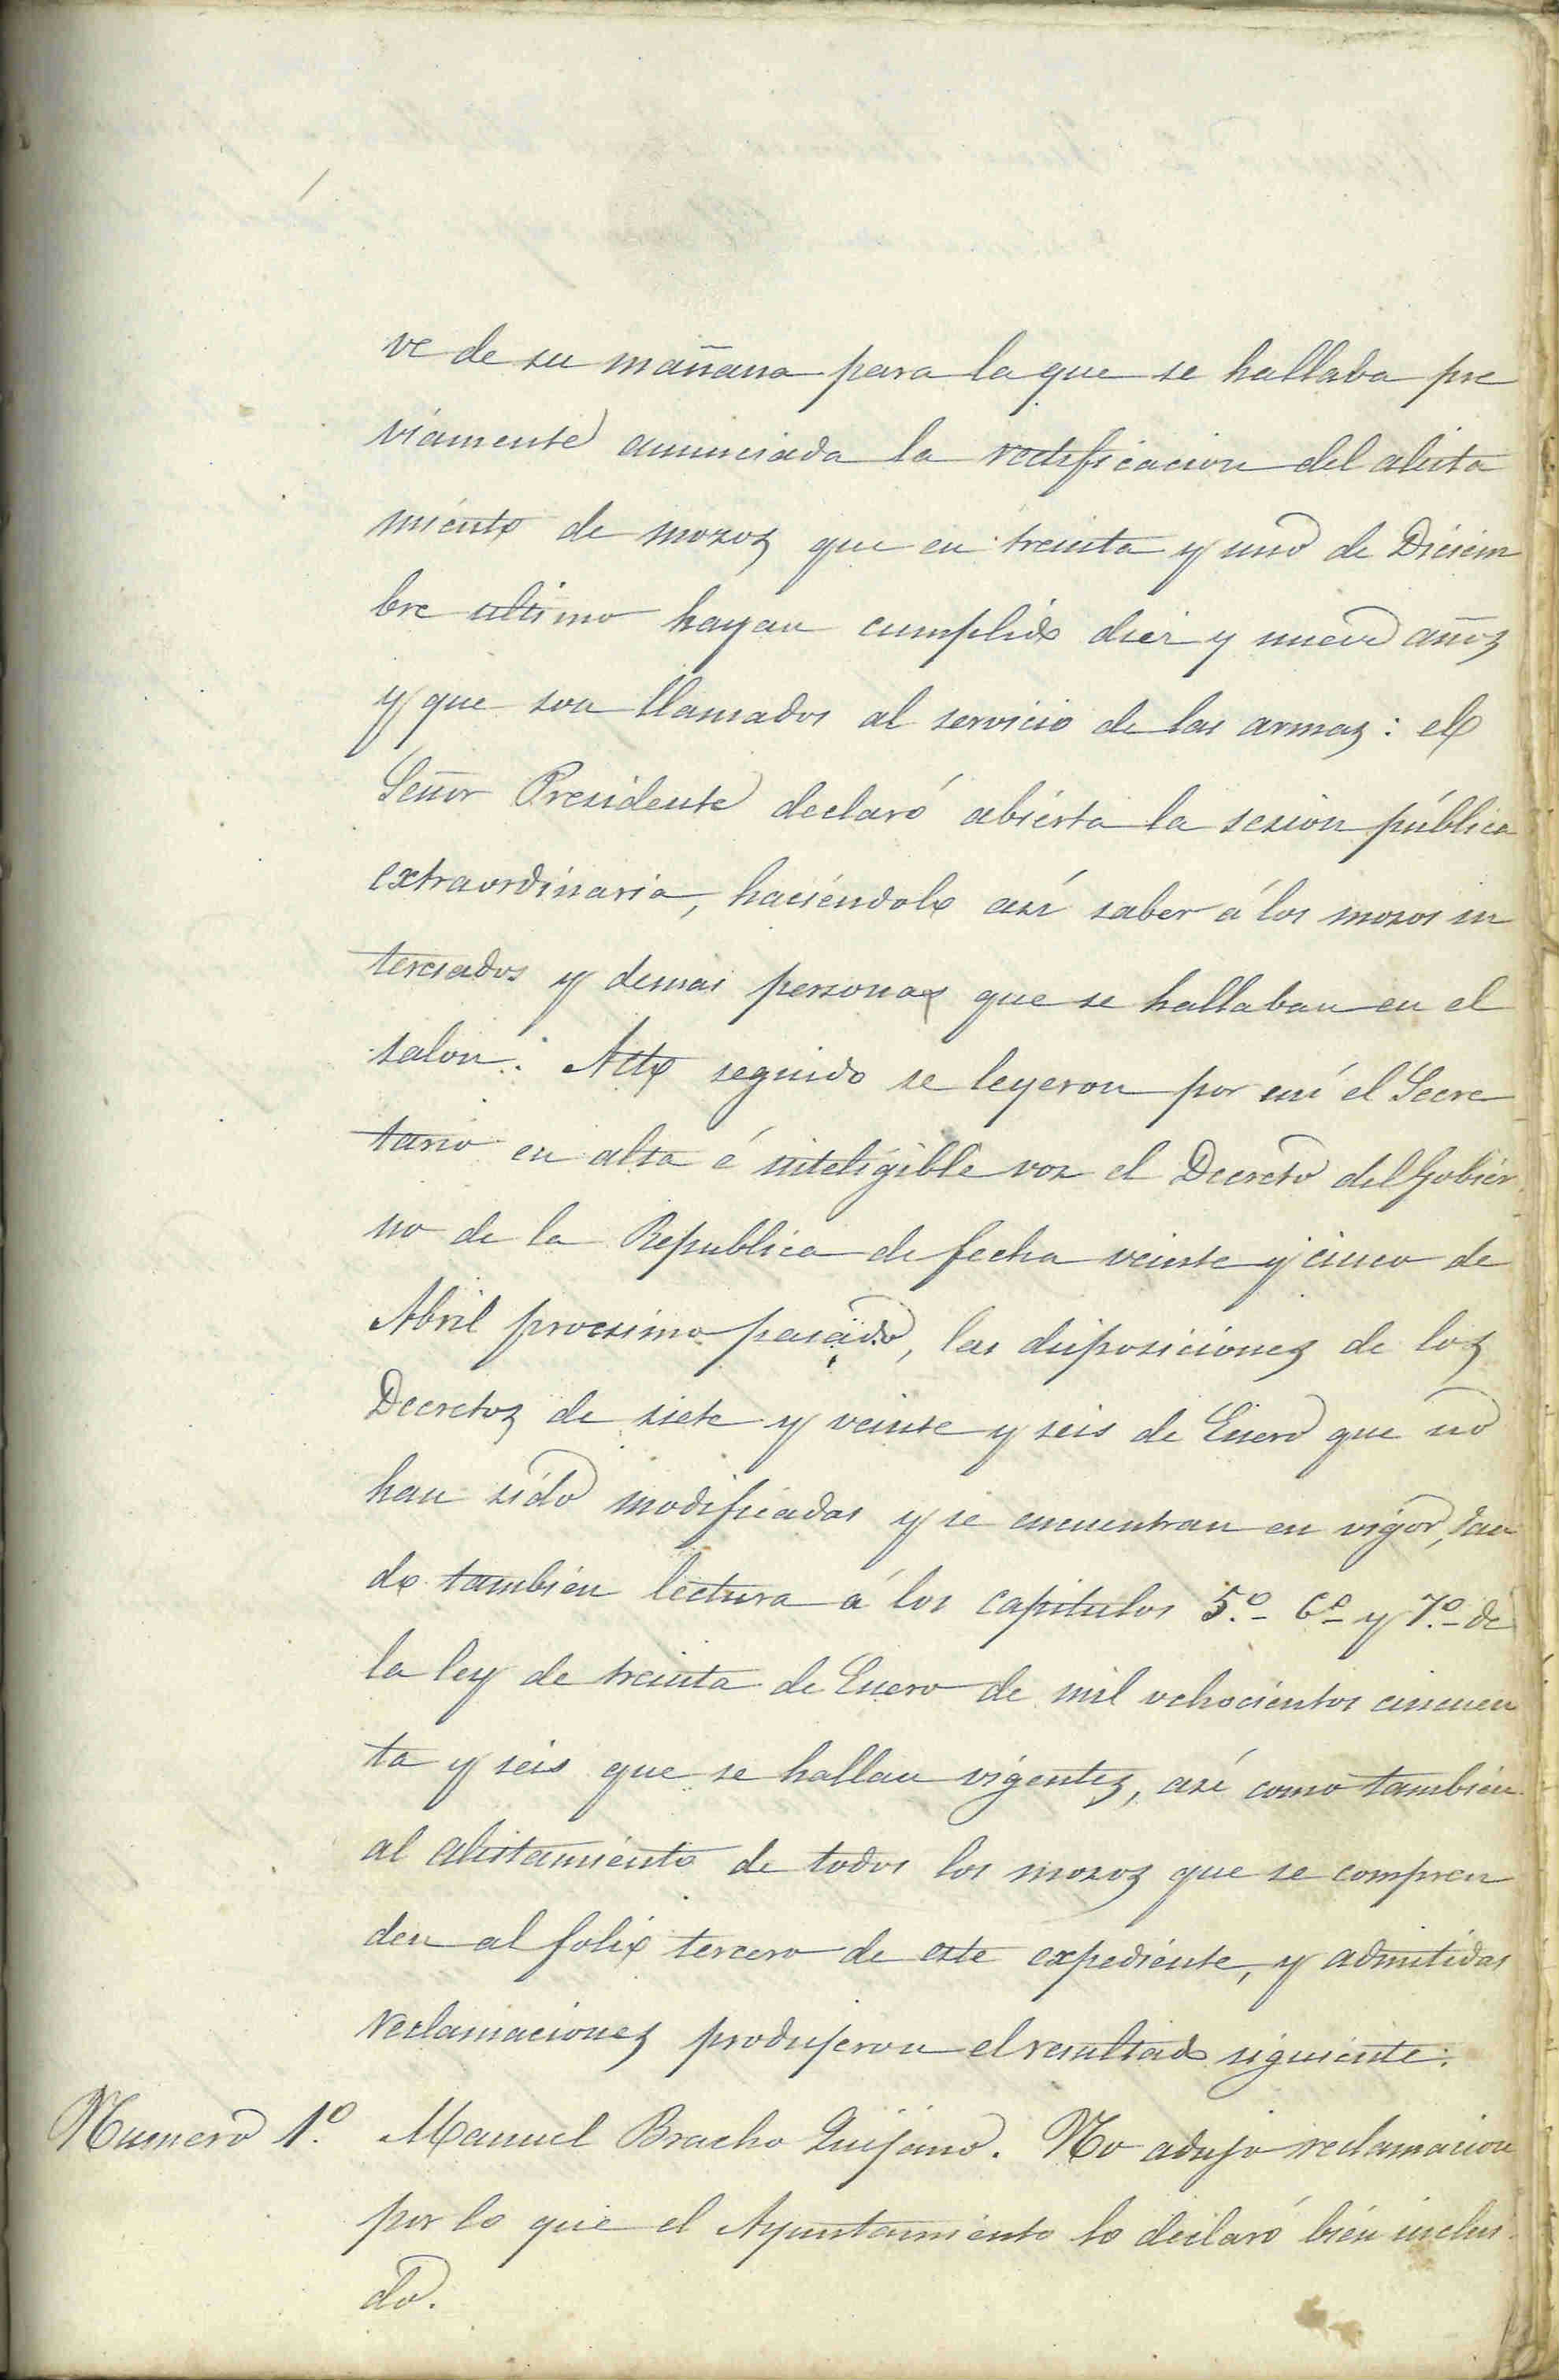 ve de su mañana para la que se hallaba pre
viamente anunciada la rectificacion del alista
miento de mozos que en treinta y uno de Diciem
bre ultimo hayan cumplido diez y nueve años
y que son llamados al servicio de las armas: el
Señor Presidente declaró abierta la sesion pública
extraordinaria, haciéndolo asi saber á los mozos in
teresados y demas personas que se hallaban en el
salon. Acto seguido se leyeron por mí el Secre
tario en alta é inteligible voz el Decreto del Gobier
no de la Republica de fecha veinte y cinco de
Abril procsimo pasado, las disposiciones de los
Decretos de siete y veinte y seis de Enero que no
han sido modificadas y se encuentran en vigor, dan
do tambien lectura á los capitulos 5.º 6º y 7.º de
la ley de treinta de Enero de mil ochocientos cincuen
ta y seis que se hallan vigentes, asi como tambien
al alistamiento de todos los mozos que se compren
den al folio tercero de este expediente, y admitidas
reclamaciones produjeron el resultado siguiente:
Numero 1.º Manuel Bracho Quijano. No adujo reclamacion
por lo que el Ayuntamiento lo declaró bien inclui
do.